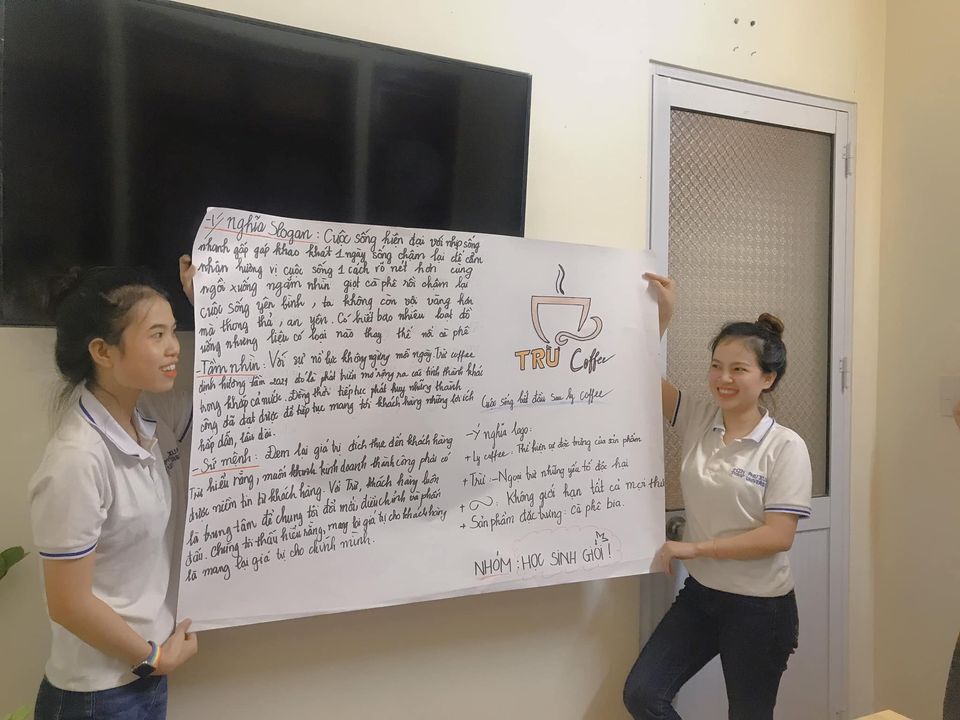 -Ý nghĩa Slogan: Cuộc sống hiện đại với nhịp sống
nhanh gấp gáp khao khát 1 ngày sống chậm lại để cảm
nhận hương vị cuộc sống 1 cách rõ nét hơn cùng
ngồi xuống ngắm nhìn giọt cà phê rồi chậm lại
cuộc sống yên bình, ta không còn vội vàng hơn
mà thong thả, an yên. Có biết bao nhiêu loại đồ
uống nhưng liệu có loại nào thay thế nổi cà phê
-Tầm nhìn: Với sự nỗ lực không ngừng mỗi ngày. Trừ coffee
định hướng tầm 2024 đó là phát triển mở rộng ra các tỉnh thành khác
trong khắp cả nước. Đồng thời tiếp tục phát huy những thành
công đã đạt được để tiếp tục mang tới khách hàng những lợi ích
hấp dẫn, lâu dài.
-Sứ mệnh: Đem lại giá trị đích thực đến khách hàng
Trừ hiểu rằng, muốn kinh doanh thành công phải có
được niềm tin từ khách hàng. Với Trừ, khách hàng luôn
là trung tâm để chúng tôi đổi mới, điều chỉnh và phấn
đấu. Chúng tôi thấu hiểu rằng, mang lại giá trị cho khách hàng
là mang lại giá trị cho chính mình.
TRỪ Coffee
Cuộc sống bắt đầu sau ly coffee
-Ý nghĩa logo:
+ Ly coffee: Thể hiện sự đặc trưng của sản phẩm
+ Trừ: -Ngoại trừ những yếu tố độc hại
+ ∞: Không giới hạn tất cả mọi thứ
+ Sản phẩm đặc trưng: Cà phê bia.
NHÓM: HỌC SINH GIỎI!